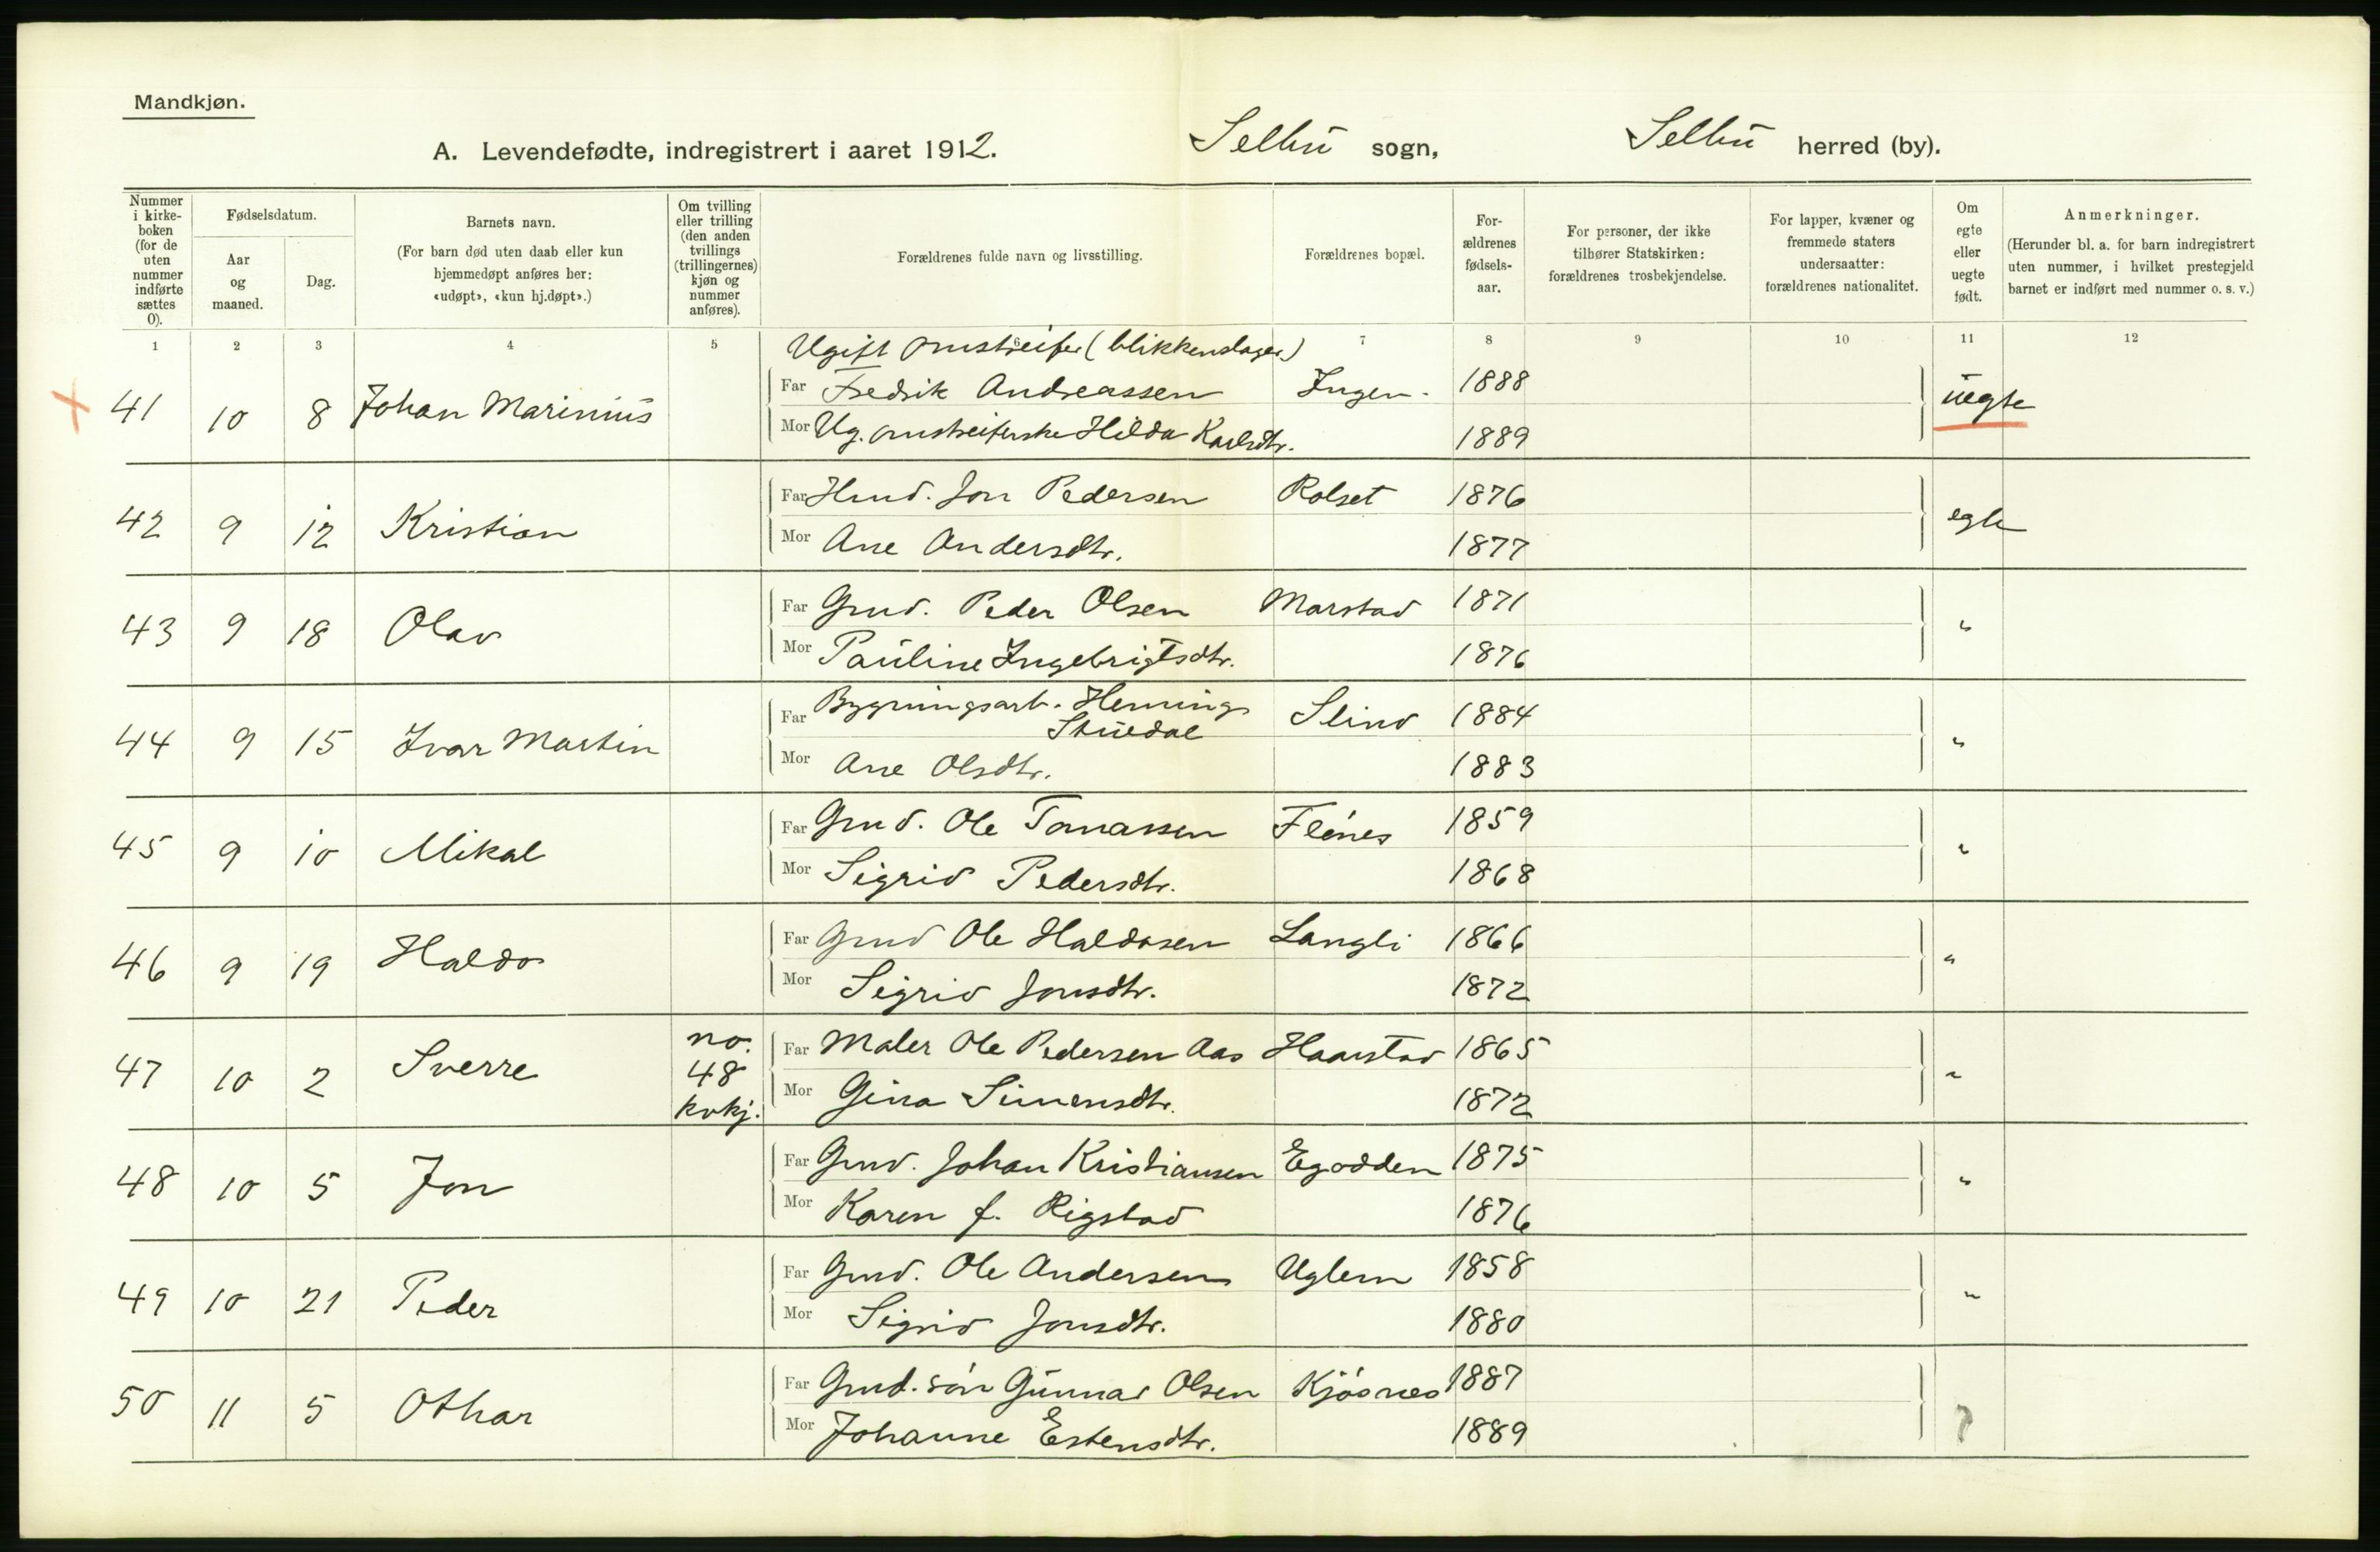 Mandkjøn.
A. Levendefødte, indregistrert i aaret 1912. Selbu sogn, Selbu herred (by).
Nummer i kirke-boken (for de uten nummer indførte sættes 0).
Fødselsdatum.
Aar og maaned.
Dag.
Barnets navn.
(For barn død uten daab eller kun hjemmedøpt anføres her: «udøpt», «kun hj.døpt».)
Om tvilling eller trilling (den anden tvillings (trillingernes) kjøn og nummer anføres).
Forældrenes fulde navn og livsstilling.
Forældrenes bopæl.
For-ældrenes fødsels-aar.
For personer, der ikke tilhører Statskirken: forældrenes trosbekjendelse.
For lapper, kvæner og fremmede staters undersaatter: forældrenes nationalitet.
Om egte eller uegte født.
Anmerkninger.
(Herunder bl. a. for barn indregistrert uten nummer, i hvilket prestegjeld barnet er indført med nummer o. s. v.)
1 2 3 4 5 6 7 8 9 10 11 12
Ugift omstreifer (blikkenslager)
41 10 8 Johan Marinius Far Fredrik Andreassen Ingen. 1888 uegte
Mor Ug. omstreiferske Hilda Karlsdtr. 1889
42 9 12 Kristian Far Hmd. Jon Pedersen Rolset 1876 egte
Mor Ane Andersdtr. 1877
43 9 18 Olav Far Gmd. Peder Olsen Marstad 1871 "
Mor Pauline Ingebrigtsdtr. 1876
44 9 15 Ivar Martin Far Bygningsarb. Henning Stuedal Slind 1884 "
Mor Ane Olsdtr. 1883
45 9 10 Mikal Far Gmd. Ole Tomassen Flónes 1859 "
Mor Sigrid Pedersdtr. 1868
46 9 19 Haldo Far Gmd Ole Haldosen Langli 1866 "
Mor Sigrid Jonsdtr. 1872
47 10 2 Sverre no. 48 kvkj. Far Maler Ole Pedersen Aas Haarstad 1865 "
Mor Gina Simensdtr. 1872
48 10 5 Jon Far Gmd. Johan Kristiansen Egodden 1875 "
Mor Karen f. Rigstad 1876
49 10 21 Peder Far Gmd. Ole Andersen Uglem 1858 "
Mor Sigrid Jonsdtr. 1880
50 11 5 Othar Far Gmd. són Gunnar Olsen Kjósnes 1887 ?
Mor Johanne Estensdtr. 1889